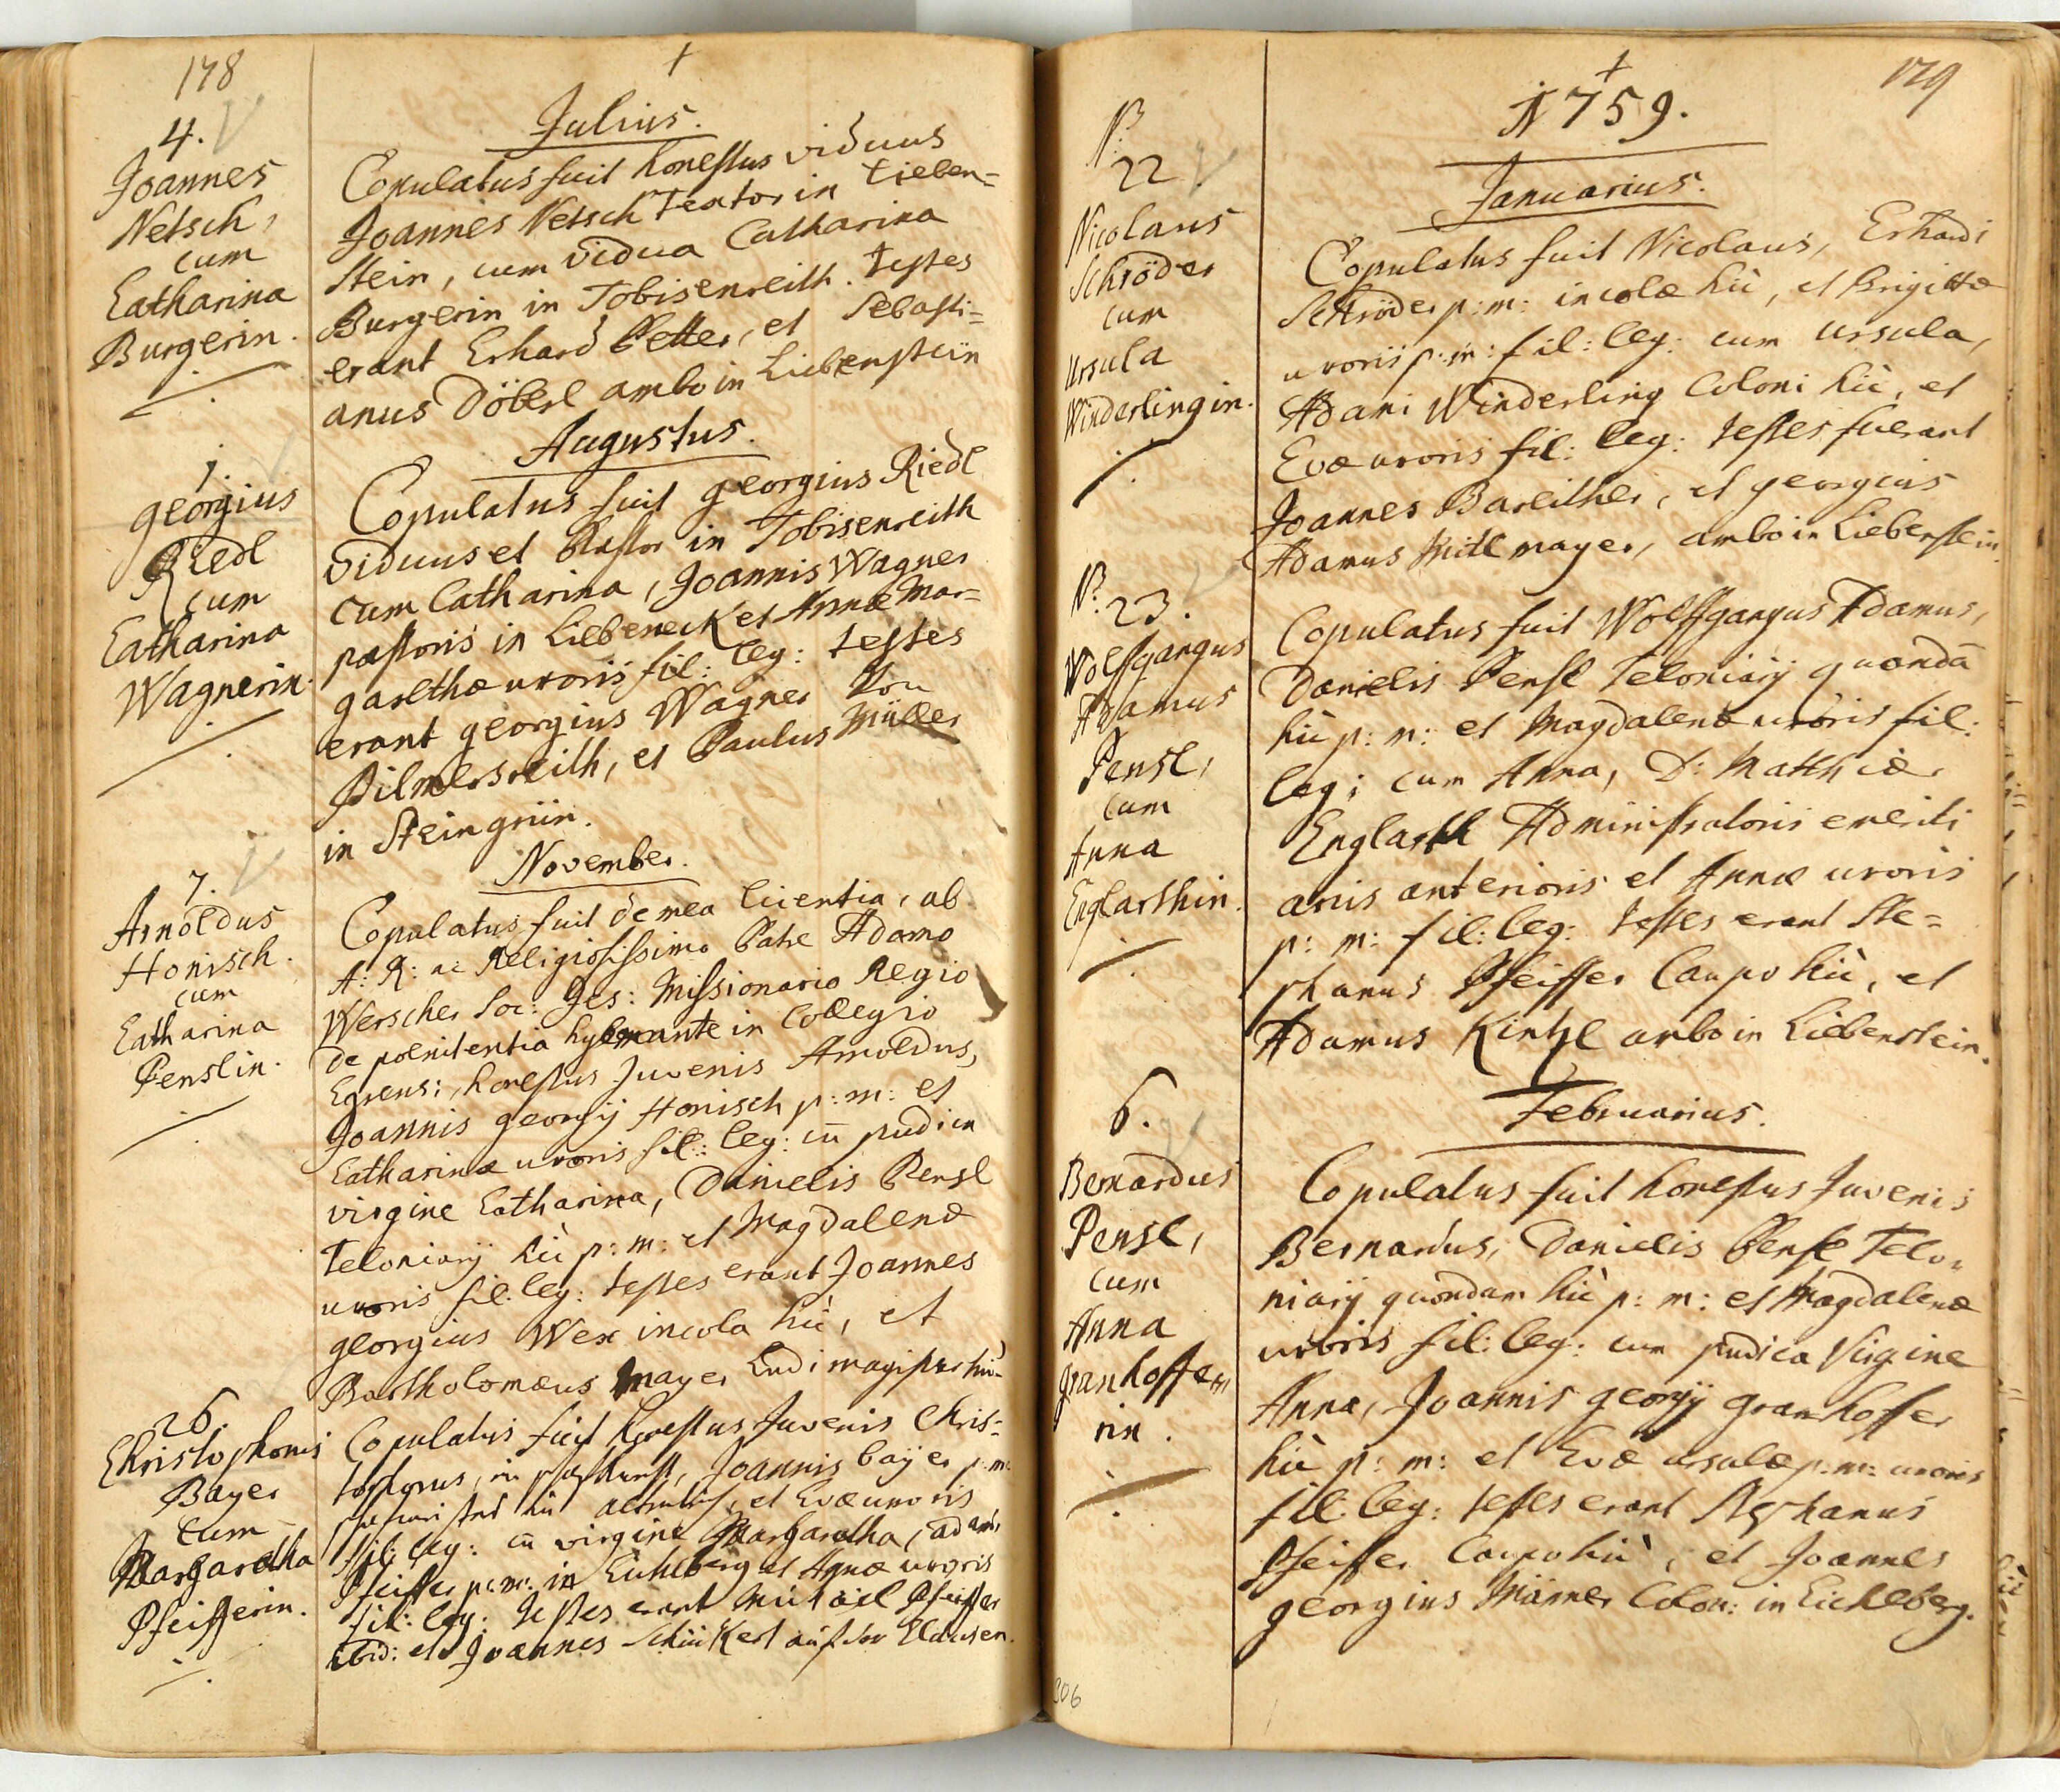 178
†
Julius.
4.
Joannes
Netsch,
cum
Catharina
Burgerin.
Copulatus fuit honestus viduus
Joannes Netsch Textor in Lieben=
stein, cum vidua Catharina
Burgerin in Tobisenreith. testes
erant Erhard Petter, et Sebasti=
anus Döberl ambo in Liebenstein
Augustus.
1.
georgius
Riedl
cum
Catharina
Wagnerin.
Copulatus fuit georgius Riedl
viduus et Pastor in Tobisenreith
cum Catharina, Joannis Wagner
pastoris in Liebeneck et Annæ Mar=
garethæ uxoris fil: leg: testes
erant georgius Wagner von
Pilmersreith, et Paulus Müller
in Steingriin.
November.
7.
Arnoldus
Honisch.
cum
Catharina
Penslin.
Copulatus fuit de mea licentia, ab
A: R: ac Religiosissimo Patre Adamo
Werscher Soc: Jes: Missionario Regio
de poenitentia hybernante in Collegio
Egrensi, honestus Juvenis Arnoldus,
Joannis georgij Honisch p: m: et
Catharinæ uxoris fil: leg: cu̅ pudica
virgine Catharina, Danielis Pensl
Teloniarij hìc p: m: et Magdalenæ
uxoris fil: leg: testes erant Joannes
georgius Wex incola hìc, et
Bartholomæus Mayer Ludi magister hìc.
26.
Christophorus
Bayer
cum
Margaretha
Pfeifferin.
Copulatus fuit honestus Juvenis Chris=
tophorus, Joannis bayer p: m:
hìc et Evæ uxoris
fil: leg: cu̅ virgine Margaretha, Adami
Pfeiffer p: m: in Eichlberg et Annæ uxoris
fil: leg: testes erant Michäel Pfeiffer
ibid: et Joannes Schückert auf der Clausen.
179
†
1759.
Januarius.
N:
22
Nicolaus
Schröder
cum
Ursula
Winderlingin.
Copulatus fuit Nicolaus, Erhardi
Schröder p: m: incolæ hìc, et Brigittæ
uxoris p: m: fil: leg: cum Ursula,
Adami Winderling Coloni hìc, et
Evæ uxoris fil: leg: testes fuerant
Joannes Bareither, et georgius
Adamus Mitlmayer, ambo in Liebenstein
N:
23.
Wolfgangus
Adamus
Pensl,
cum
Anna
Englarthin.
Copulatus fuit Wolffgangus Adamus,
Danielis Pensl Teloniarij quonda̅
hìc p: m: et Magdalenæ uxoris fil:
leg: cum Anna, D: Matthiæ
Englarth Administratoris emeriti
anis anterioris et Annæ uxoris
p: m: fil: leg: testes erant Ste=
phanus Pfeiffer Caupo hìc, et
Adamus Kintzl ambo in Liebenstein.
Februarius.
6.
Bernardus
Pensl,
cum
Anna
granhoffe=
rin.
Copulatus fuit honestus Juvenis
Bernardus, Danielis Pensl Telo=
niarij quondam hìc p: m: et Magdalenæ
uxoris fil: leg: cum pudica Virgine
Anna, Joannis georgij granhoffer
hìc p: m: et Evæ ursulæ p: m: uxoris
fil: leg: testes erant Stephanus
Pfeiffer Caupo hìc, et Joannes
georgius Männer Colon: in Eichelberg.
306